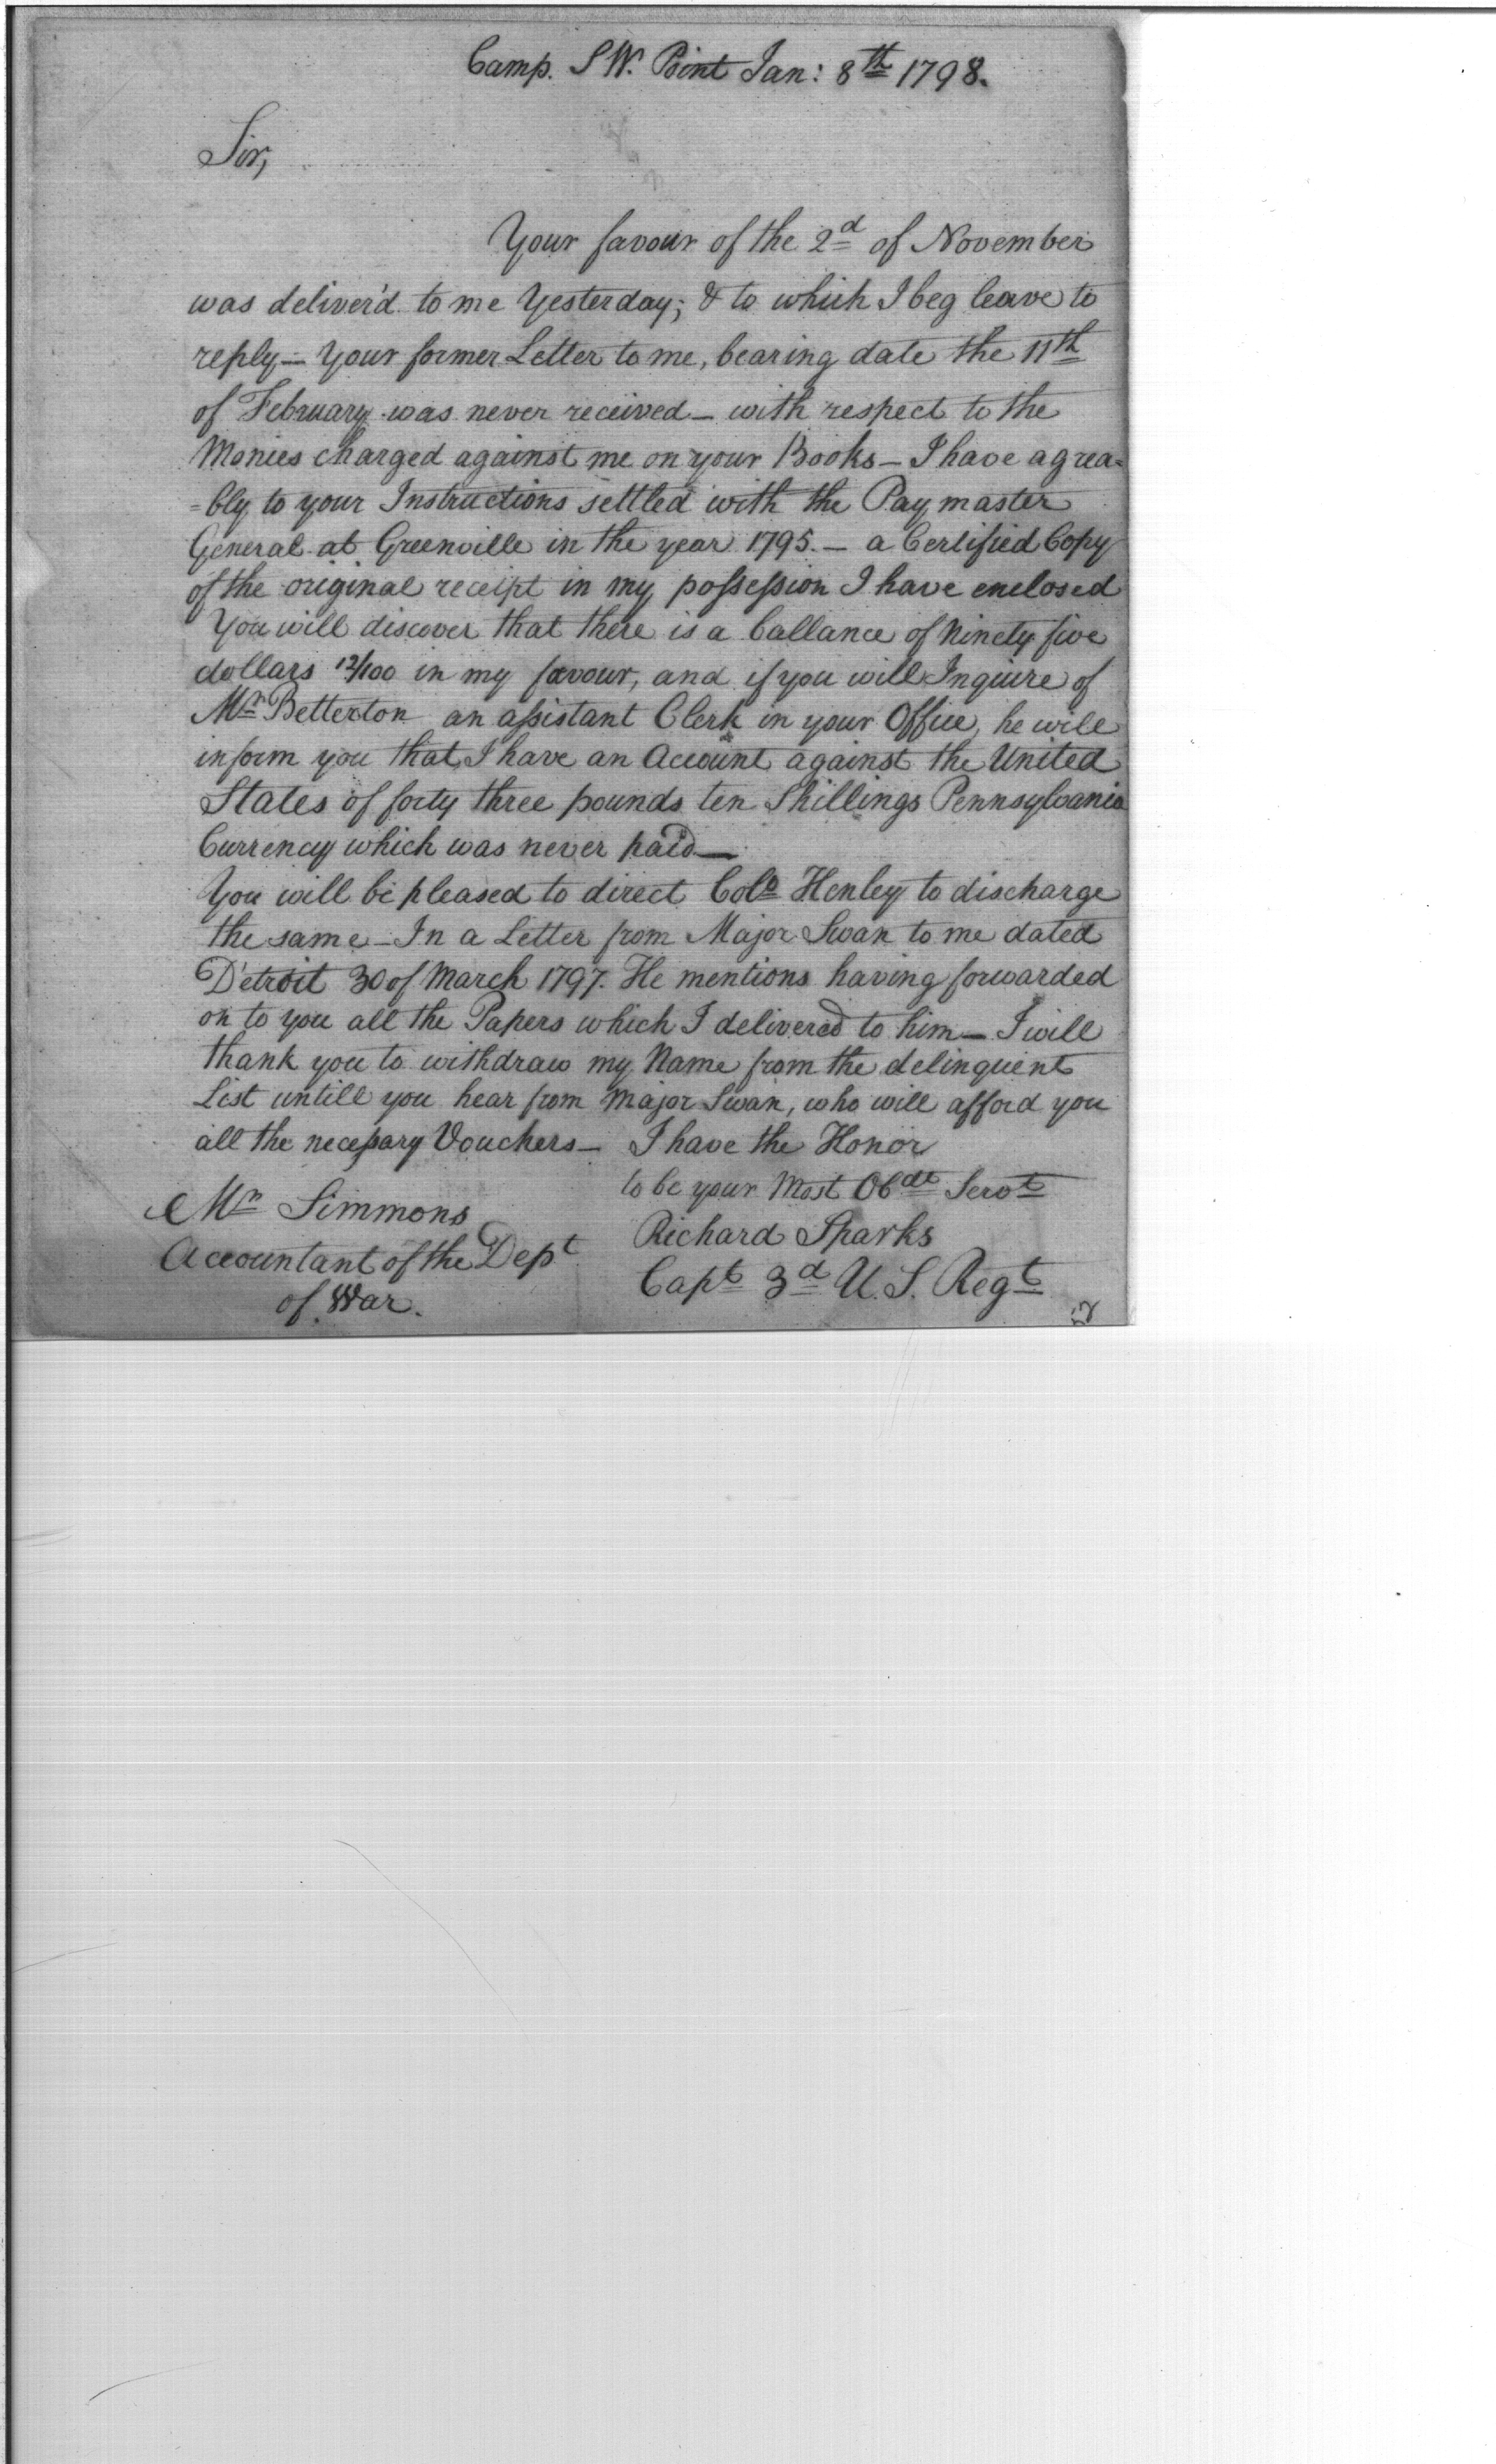 Camp. S W. Point Jan: 8th 1798.
Sir,
Your favour of the 2d of November
was deliver'd to me Yesterday; & to which I beg leave to
reply — Your former Letter to me, bearing date the 11th
of February was never received — with respect to the
Monies charged against me on your Books — I have agrea=
=bly to your Instructions settled with the Pay master
General at Greenville in the year 1795. — a Certified Copy
of the original receipt in my possession I have enclosed
You will discover that there is a ballance of Ninety five
dollars 12/100 in my favour, and if you will Inquire of
Mr Betterton an assistant Clerk in your Office, he will
inform you that I have an Account against the United
States of forty three pounds ten Shillings Pennsylvania
Currency which was never paid —
You will be pleased to direct Colo Henley to discharge
the same — In a Letter from Major Swan to me dated
D'etroit 30 of March 1797. He mentions having forwarded
on to you all the Papers which I delivered to him — I will
thank you to withdraw my Name from the delinquent
List untill you hear from Major Swan, who will afford you
all the necessary Vouchers — I have the Honor
to be your Most Obdt Servt
Mr Simmons
Accountant of the Dept
of War.
Richard Sparks
Capt 3d U. S. Regt